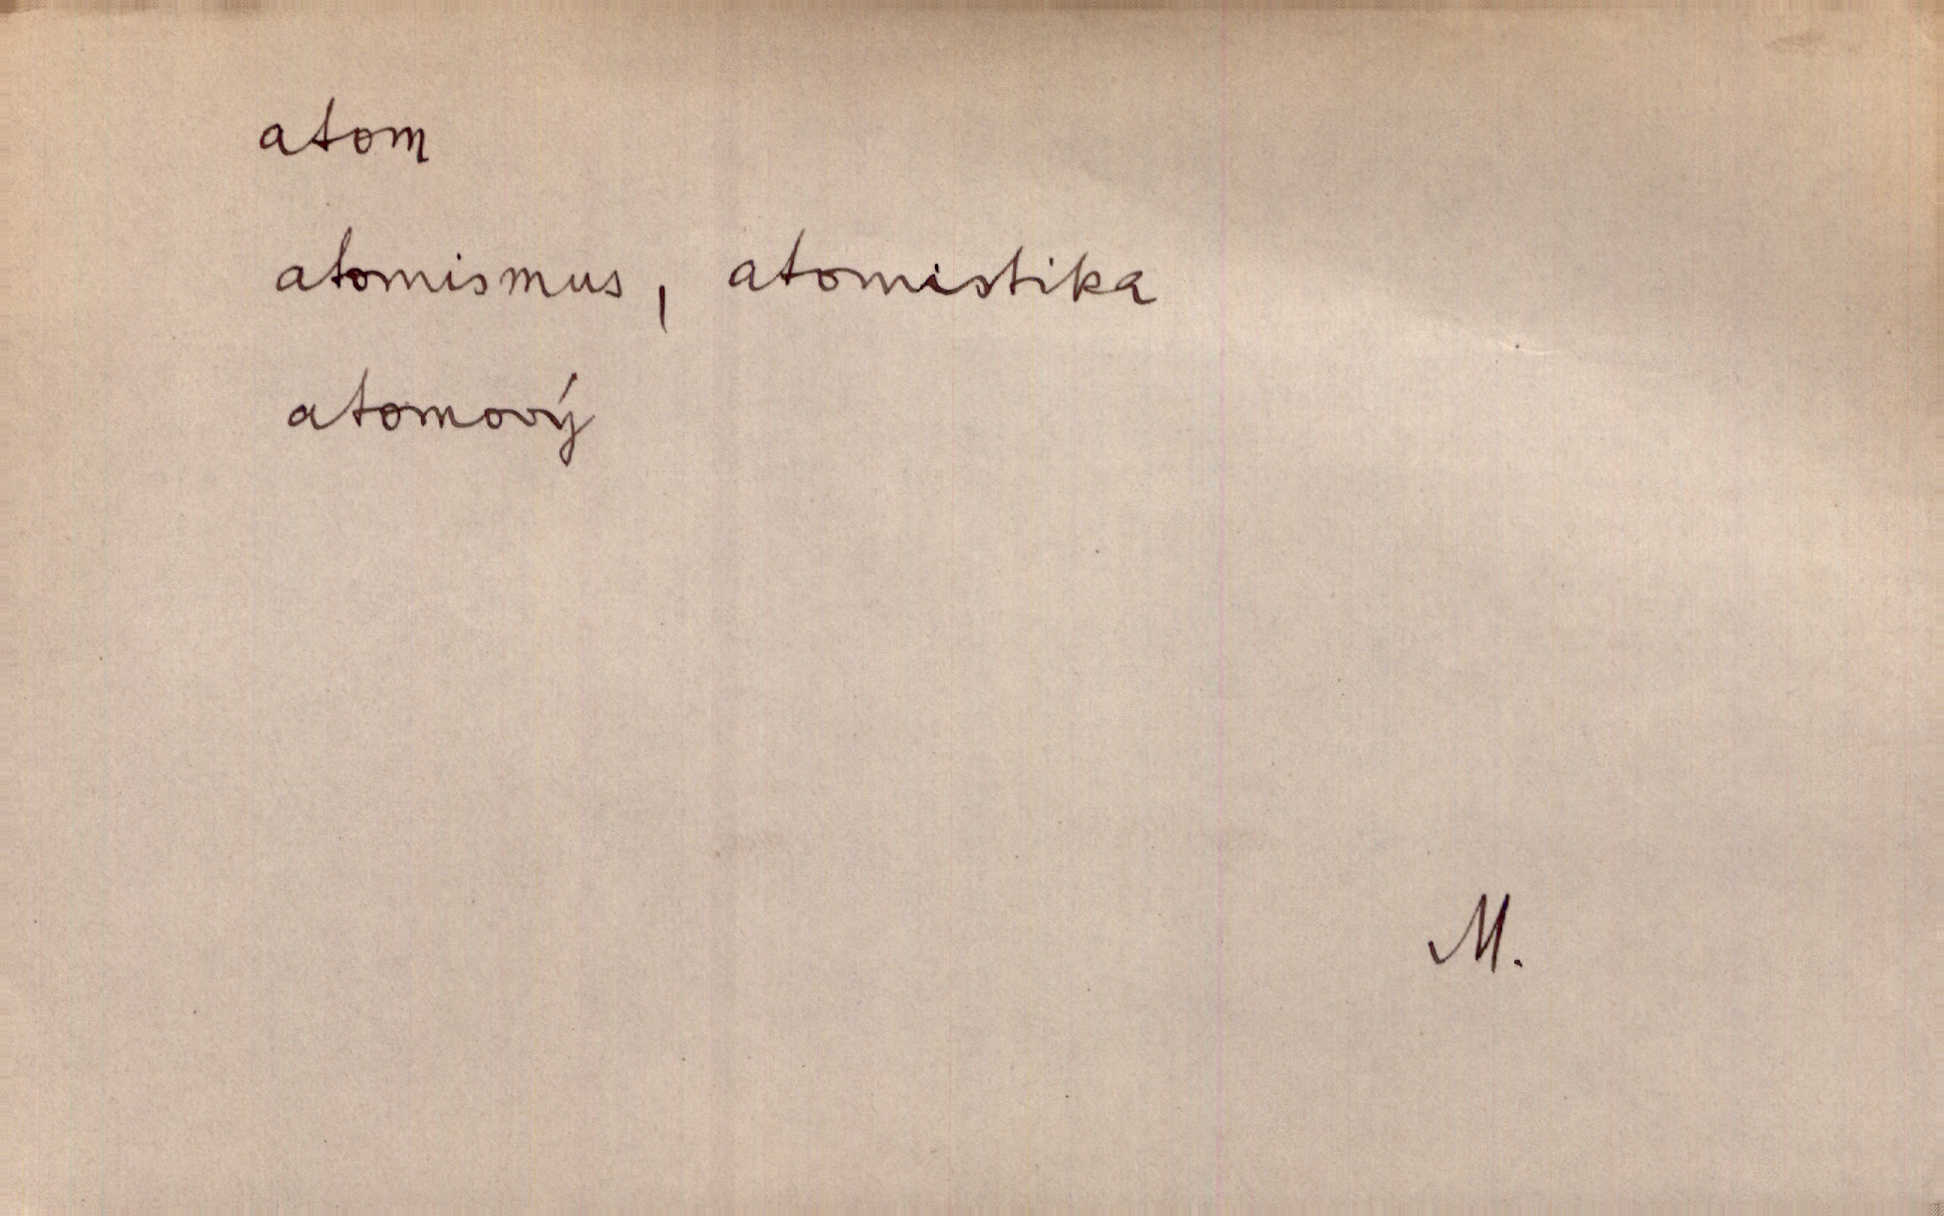 atom
atomismus, atomistika
atomový
M.